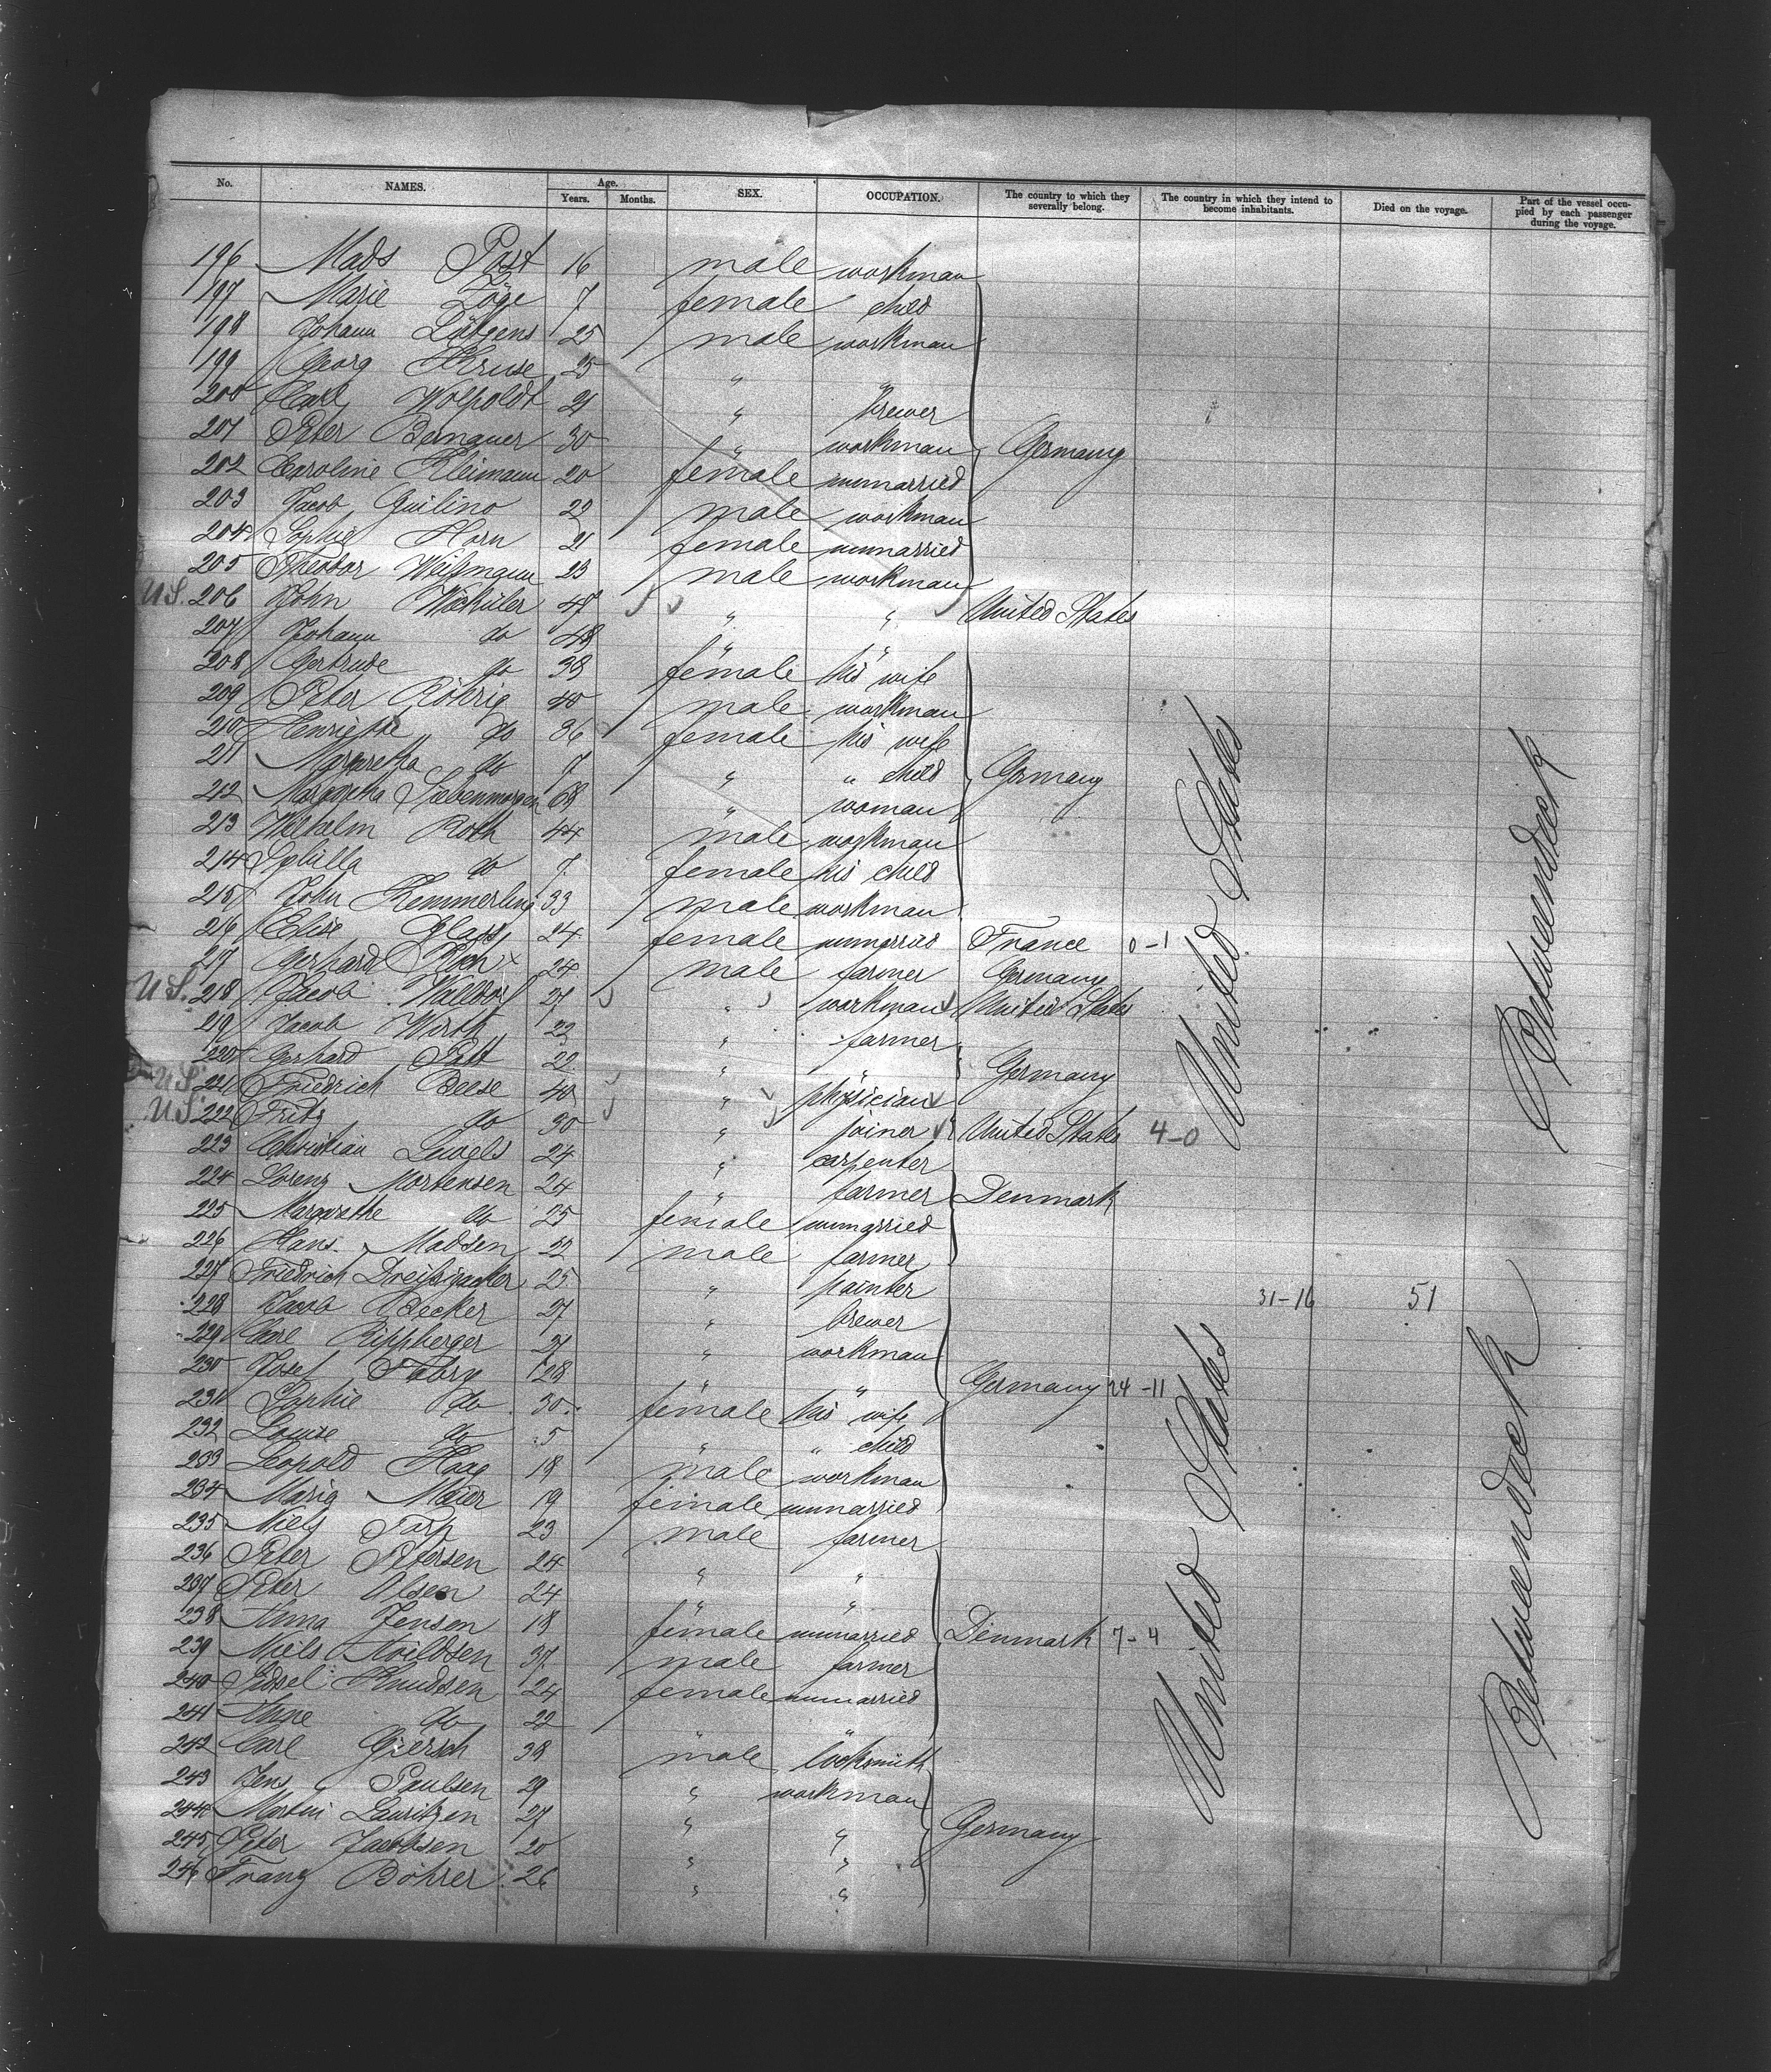 No. NAMES. Age. Years. Months. SEX. OCCUPATION. The country to which they severally belong. The country in which they intend to become inhabitants. Died on the voyage. Part of the vessel occupied by each passenger during the voyage.
196 Mads Post 16 male workman
197 Marie Töge 7 female child
198 Johann Lütgens 25 male workman
199 Georg Kruse 25 "
200 Carl Wolpoldt 21 " brewer
201 Peter 30 " workman Germany
202 Caroline Kleimann 20 female unmarried
203 Jacob Guilino 22 male workman
204 Sophie Horn 21 female unmarried
205 Theodor Weißmann 23 male workman
U.S. 206 John 47 " " United States
207 Johann do 48 " "
208 Gertrude do 38 female his wife
209 Peter Röhrig 40 male workman
210 Henriette do 36 female his wife
211 Margaretha do 7 " " child Germany
212 Margaretha Siebenmorgen 68 " woman
213 Wilhelm Roth 44 male workman
214 Sybilla do 7 female his child
215 John Kemmerling 33 male workman
216 Elise Glass 24 female unmarried France 0-1
217 Gerhard 24 male farmer Germany
U.S. 218 Jacob 27 " workman United States
219 Jacob Wirth 22 " farmer
220 Gerhard Patt 22 " " Germany
U.S. 221 Friedrich Beese 40 " physician
U.S. 222 Fritz do 30 " joiner United States 4-0
223 Christian 24 " carpenter
224 Lorenz Mortensen 24 " farmer Denmark
225 Margarethe do 25 female unmarried
226 Hans Madsen 22 male farmer
227 Friedrich 25 " painter
228 Jacob Becker 27 " brewer 31-16 51
229 Carl Rippberger 21 " workman
230 Josef Fabry 28 " " Germany 24-11
231 Sophie do 30 female his wife
232 Louise do 5 " " child
233 Leopold Haag 18 male workman
234 Maria Maier 19 female unmarried
235 Niels Tarp 23 male farmer
236 Peter Petersen 24 " "
237 Peter Olsen 24 " "
238 Anna Jensen 18 female unmarried Denmark 7-4
239 Niels 37 male farmer
240 Sidsel Knudsen 24 female unmarried
241 Anne do 22 " "
242 Carl Giersch 38 male locksmith
243 Jens Paulsen 29 " workman
244 Martin Lauritzen 27 " " Germany
245 Peter Jacobsen 20 " "
246 Franz Böhrer 26 " "
United States
United States
Betweendeck
Betweendeck